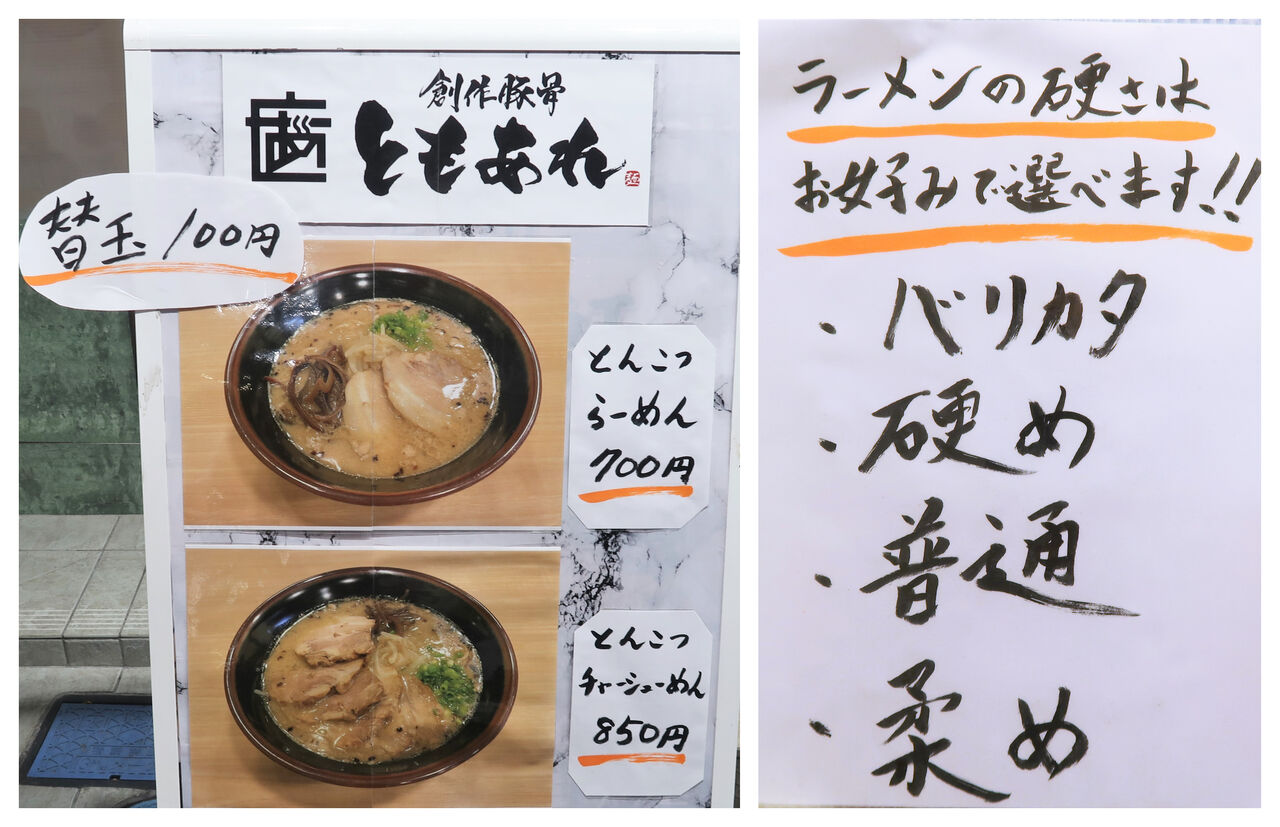 創作豚骨
ともあれ
替玉 100円
とんこつ
らーめん
700円
とんこつ
チャーシューめん
850円
ラーメンの硬さは
お好みで選べます!!
・バリカタ
・硬め
・普通
・柔め